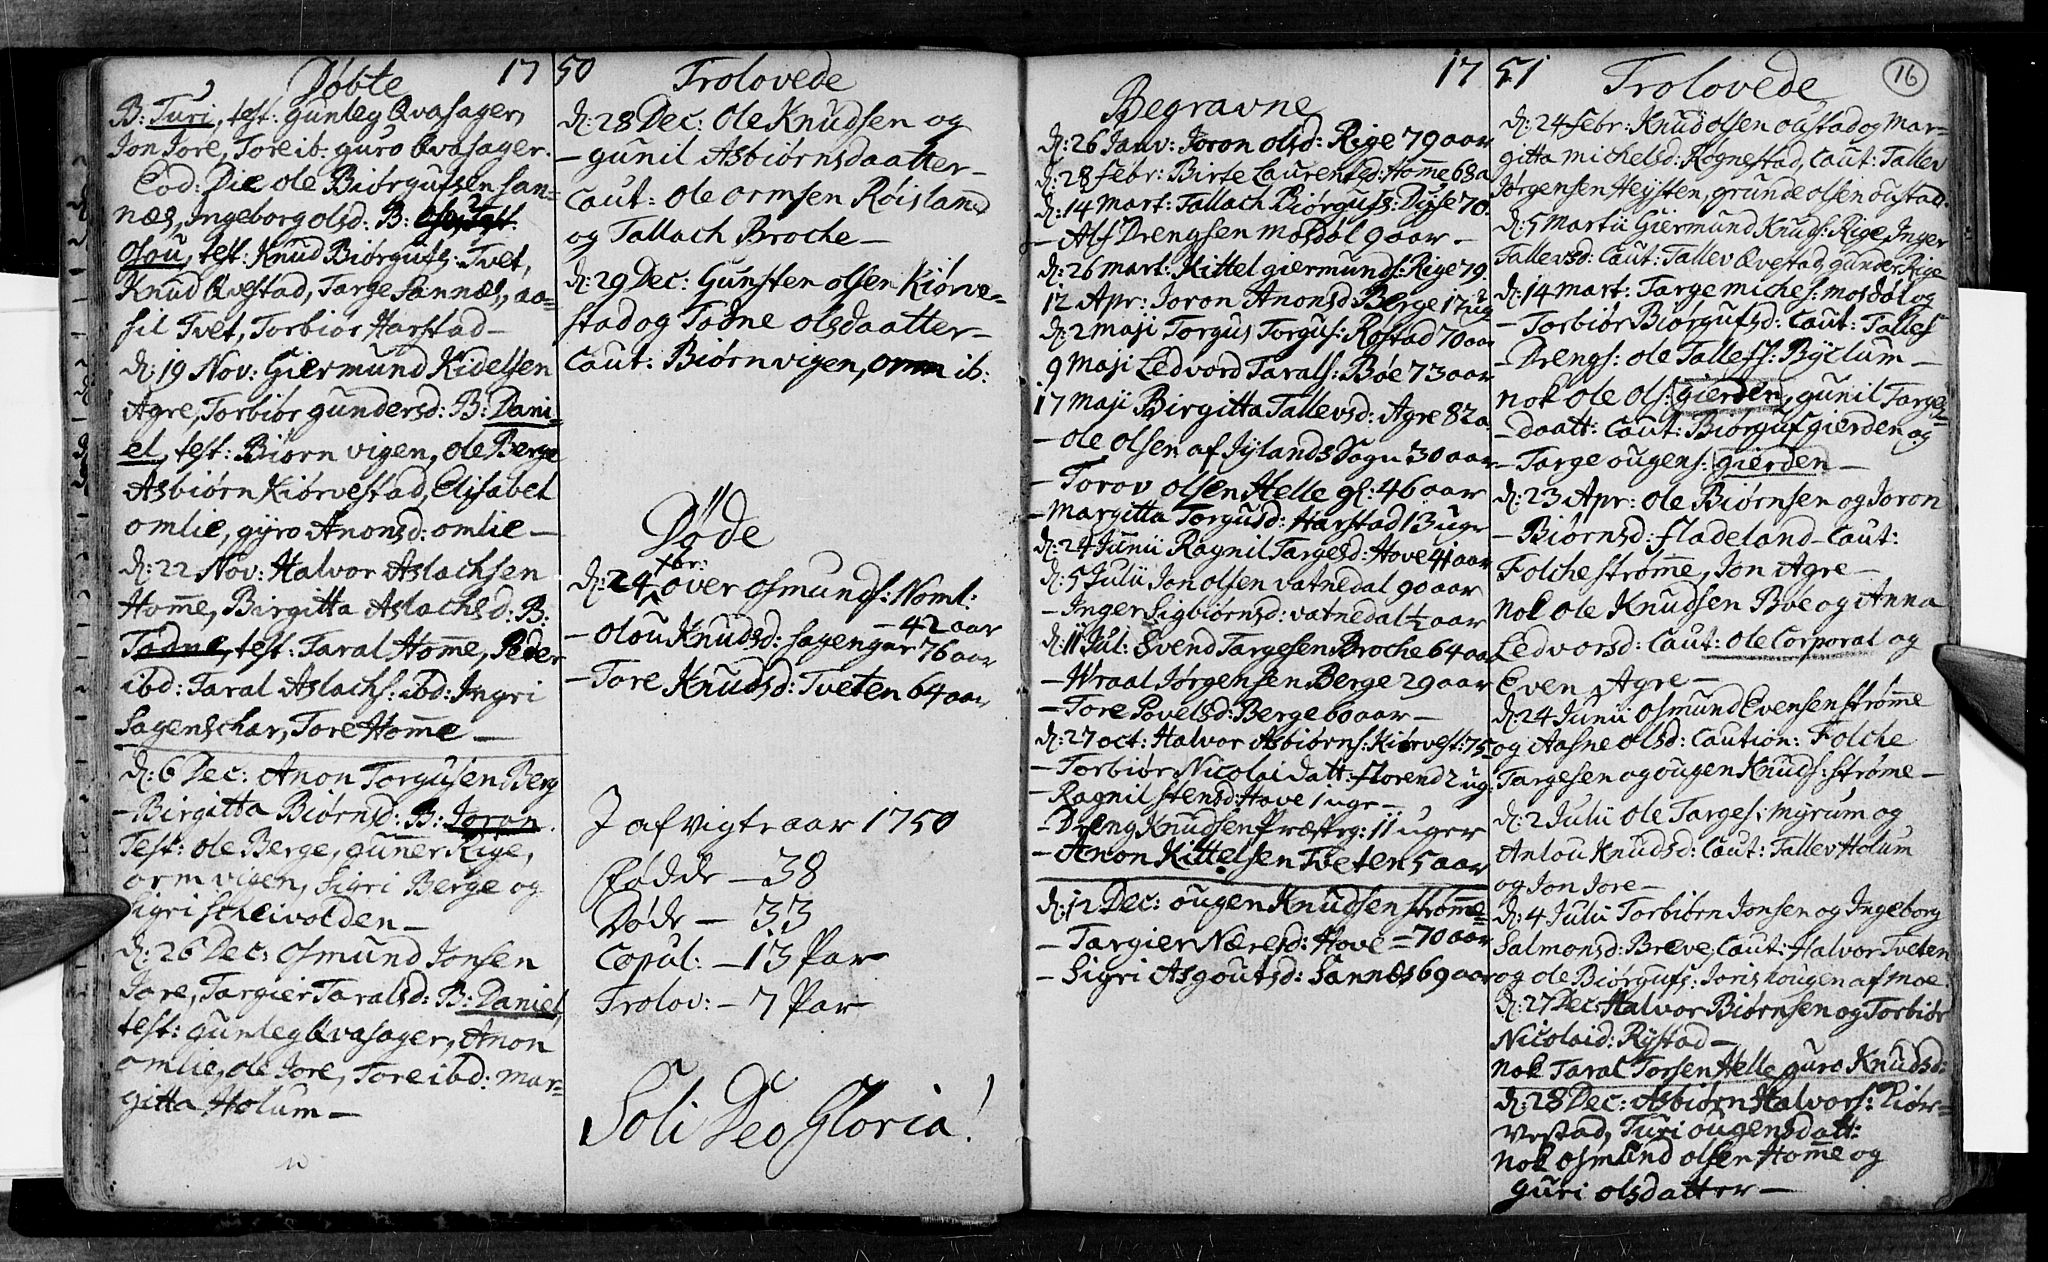 Døbte 17
B: Turi, test: Gunleg Qvasager,
Jon Jore, Tore ib: Guro Qvasager.
Eod: Die Ole Biørgufsen San-
næs, Ingeborg Olsd: B:
Osou, test: Knud Biørgufs: Tvet,
Knud Qvestad, Targe Sannæs, Aa-
sil Tvet, Torbiør Harstad –
d: 19 Nov: Giermund Kidelsen
Agre, Torbiør Gundersd: B: Dani-
el, test: Biørn Vigen, Ole Berge
Asbiørn Kiørvestad, Elisabet
Omlie, Gyro Anonsd: Omlie –
d: 22 Nov: Halvor Aslachsen
Hom̅e, Birgitta Aslachsd: B:
Todne, test: Taral Hom̅e, Peder
ibd: Taral Aslachs: ibd: Ingri
Sagenschar, Tore Hom̅e –
d: 6 Dec: Anon Torgusen Berg
– Birgitta Biørnsd: B: Joron.
Test: Ole Berge, Guner Rige,
Orm Vigen, Sigri Berge og
Sigri Scheivolden –
d: 26 Dec: Osmund Jonsen
Jore, Targier Taralsd: B: Daniel,
test: Gunleg Qvasager, Anon
Omlie, Ole Jore, Tore ibd: Mar-
gitta Holum –
50 Trolovede
d: 28 Dec: Ole Knudsen og
– Gunil Asbiørnsdaatter –
Caut: Ole Ormsen Røisland
og Tallach Broche –
d: 29 Dec: Gunsten Olsen Kiørve-
stad og Todne Olsdaatter –
Caut: Biørn Vigen, Orm ib:
Døde
d: 24 Xbr: Over Osmunds: Noml:
– 42 aar
– Olou Knudsd: Sagengar 76 aar
– Tore Knudsd: Tveten 64 aar
J afvigtr aar 1750
Fødde – 38
Døde – 33
Copul: – 13 Par
Trolov: – 7 Par
Soli Deo Gloria!
Begravne 17
d: 26 Janv: Joron Olsd: Rige 79 aar
d: 28 Febr: Birte Laurentsd: Hom̅e 68 a
d: 14 Mart: Tallach Biørgufs: Dyse 70.
– Alf Drengsen Mosdøl 9 aar –
d: 26 Mart: Kittel Giermunds: Rige 79
12 Apr: Joron Anonsd: Berge 17 ug
d: 2 Maji Torgus Torgus: Rostad 70 aar
9 Maji Ledvord Tarals: Bøe 73 aar
17 Maji Birgitta Tallevsd: Agre 82 a.
– Ole Olsen af Jylands Sogn 30 aar
– Torov Olsen Helle gl: 46 aar
– Margitta Torgusd: Harstad 13 uge
d: 24 Junii Ragnil Targesd: Hove 41 aar
d: 5 Julii Jon Olsen Vatnedal 90 aar
– Inger Sigbiørnsd: Vatnedal ½ aar
d: 11 Jul: Svend Targesen Broche 64 aar
– Wraal Jørgensen Berge 29 aar
– Tore Povelsd: Berge 60 aar –
d: 27 Oct: Halvor Asbiørns: Kiørvest: 75
– Torbiør Nicolaidatt: Florend 2 ug.
– Ragnil Stensd: Hove 1 uge –
– Dreng Knudsen Præstg: 11 uger
– Anon Kittelsen Tveten 5 aar
d: 12 Dec: Ougen Knudsen Strøm̅e
– Targier Næresd: Hove – 70 aar
– Sigri Asgoutsd: Sannæs 69 aar
51 Trolovede 16
d: 24 Febr: Knud Olsen Oustad og Mar-
gitta Michelsd: Rognestad, Caut: Tallev
Jørgensen Heysten, Grunde Olsen Oustad.
d: 5 Martii Giermund Knuds: Rige, Inger
Tallevsd: Caut: Tallev Qvestad, Gunder Rige
d: 14 Mart: Targe Miches: Mosdøl og
– Torbiør Biørgufsd: Caut: Tallef
– Drengs: Ole Tallefs: Byclum –
Nok Ole Ols: Gierden, Gunil Targe-
– daatt: Caut: Biørguf Gierden og
– Targe Ougens: Gierden –
d: 23 Apr: Ole Biørnsen og Joron
– Biørnsd: Fladeland – Caut:
Folche Strøm̅e, Jon Agre –
Nok Ole Knudsen Bøe og Anna
Ledvorsd: Caut: Ole Corporal og
Even Agre –
d: 24 Junii Osmund Evensen Strøm̅e
og Aasne Olsd: Caution: Folche
Targesen og Ougen Knuds: Strøme –
d: 2 Julii Ole Targes: Myrum og
Anlou Knudsd: Caut: Tallev Holum
og Jon Jore –
d: 4 Julii Torbiørn Jonsen og Ingeborg
Salmonsd: Breve, Caut: Halvor Tveten
og Ole Biørgufs: Joriskougen af Moe.
d: 27 Dec: Halvor Biørnsen og Torbiør
Nicolaid: Rystad –
Nok Taral Torsen Helle Guro Knudsd:
d: 28 Dec: Asbiørn Halvors: Kiør-
vestad, Turi Ougensdatt:
Nok Osmund Olsen Hom̅e og
Guri Olsdatter –